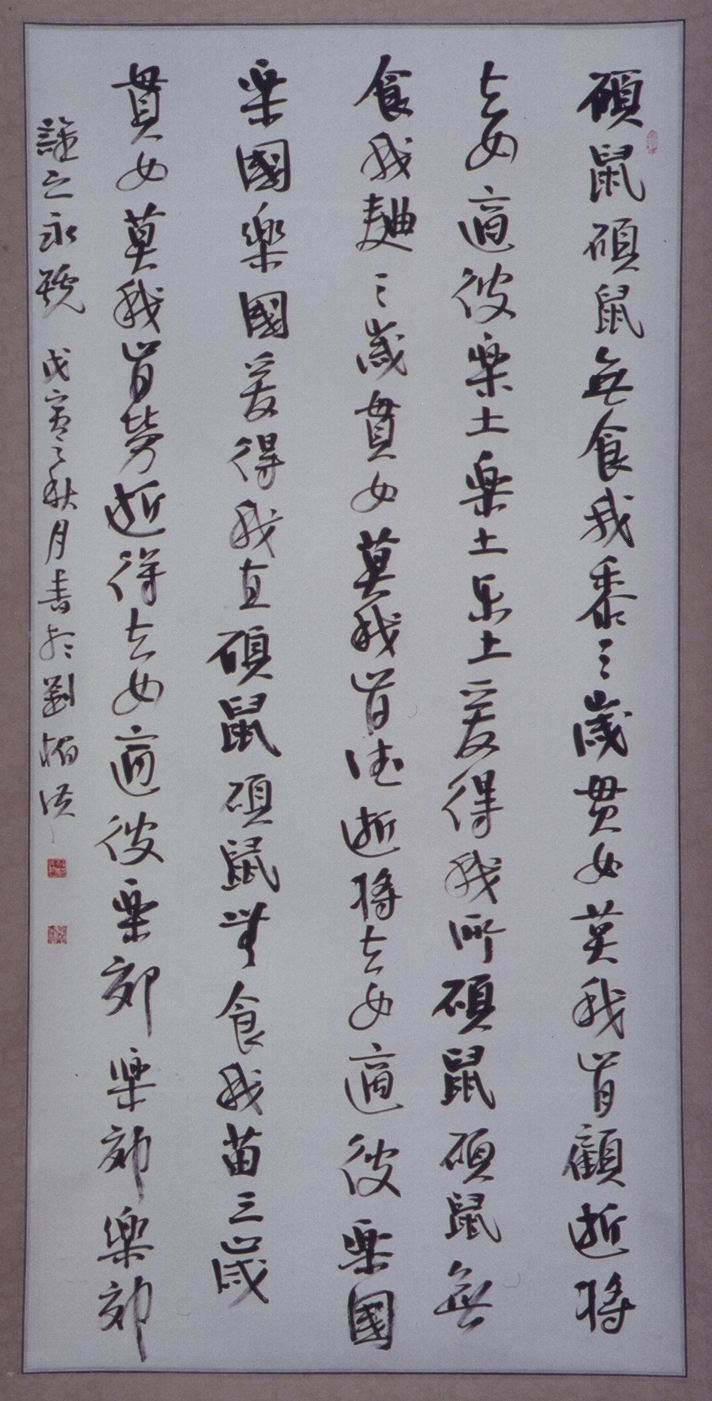 碩鼠碩鼠無食我黍三歲貫女莫我肯顧逝將
去女適彼樂土樂土乐土爰得我所碩鼠碩鼠無
食我麯三歲貫女莫我肯德逝將去女適彼樂國
樂國樂國爰得我直碩鼠碩鼠無食我苗三歲
貫女莫我肯勞逝得去女適彼樂郊樂郊樂郊
誰之永號 戊寅之秋月書於劉